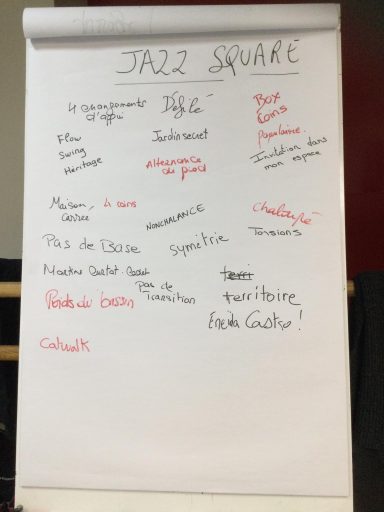 JAZZ SQUARE
4 changements d'appui
Défilé
Box
Coins
populaire.
Flow
Swing
Héritage
Jardin secret
Alternance de pied
Invitation dans
mon espace
Maison, 4 coins
carrée
NONCHALANCE
Chaloupé
Torsions
Pas de Base
symétrie
Martine
Pas de
Transition
terri
territoire
Poids du bassin
Eneida Castro !
Catwalk